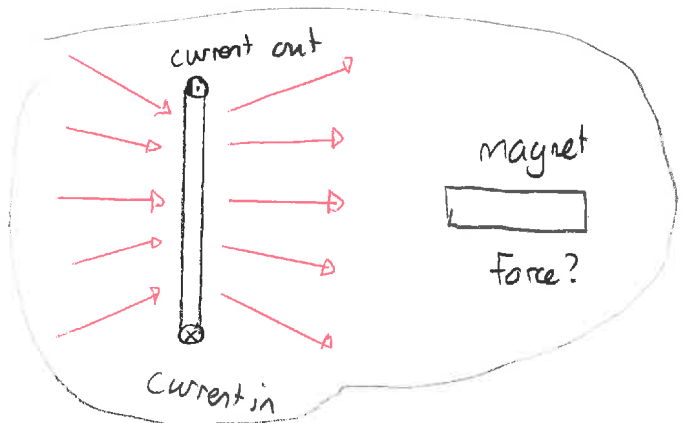 current out
magnet
force?
current in